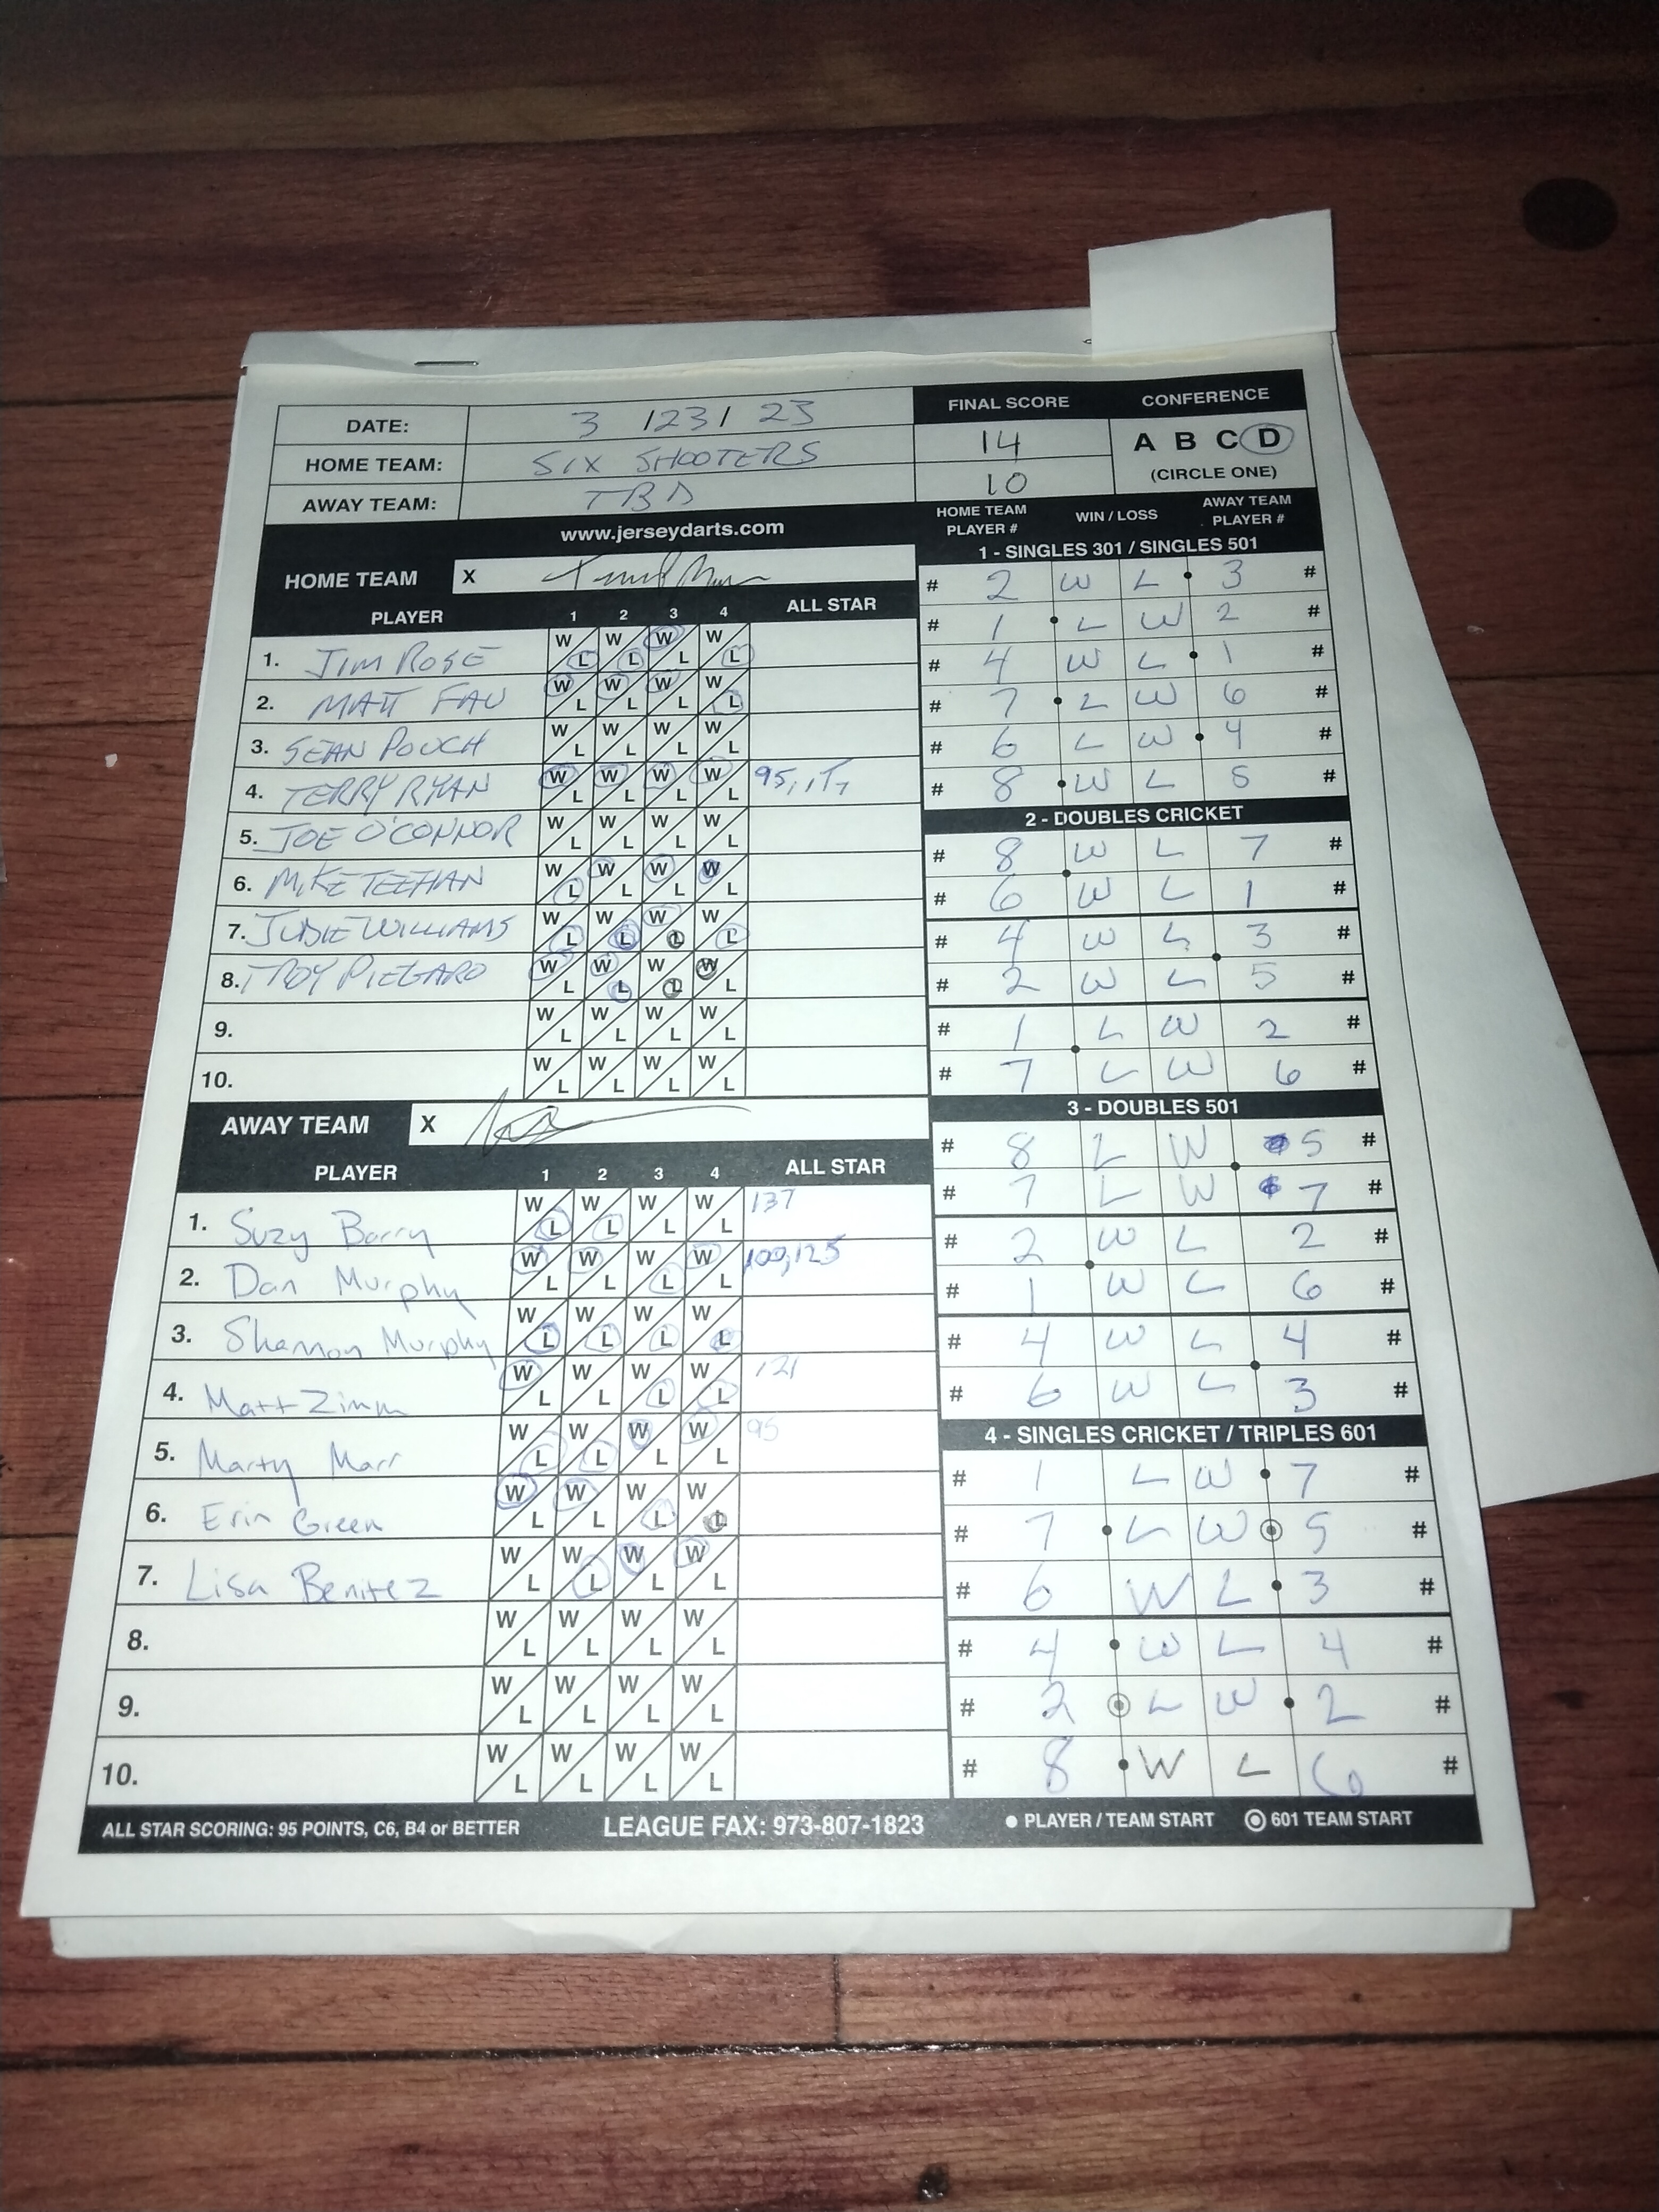 DATE: 3 / 23 / 23
HOME TEAM: SIX SHOOTERS
AWAY TEAM: TBD
FINAL SCORE
14
10
CONFERENCE
A B C D
(CIRCLE ONE)
www.jerseydarts.com
HOME TEAM X
PLAYER 1 2 3 4 ALL STAR
1. JIM ROSE W L W L W L W L
2. MATT FAU W L W L W L W L
3. SEAN POUCH W L W L W L W L
4. TERRY RYAN W L W L W L W L 95,
5. JOE O'CONNOR W L W L W L W L
6. MIKE TEEHAN W L W L W L W L
7. JUDIE WILLIAMS W L W L W L W L
8. TROY PIEGARO W L W L W L W L
9. W L W L W L W L
10. W L W L W L W L
AWAY TEAM X
PLAYER 1 2 3 4 ALL STAR
1. Suzy Barry W L W L W L W L 137
2. Dan Murphy W L W L W L W L 100,125
3. Shannon Murphy W L W L W L W L
4. Matt Zinm W L W L W L W L 121
5. Marty Marr W L W L W L W L 95
6. Erin Green W L W L W L W L
7. Lisa Benitez W L W L W L W L
8. W L W L W L W L
9. W L W L W L W L
10. W L W L W L W L
HOME TEAM PLAYER # WIN / LOSS AWAY TEAM PLAYER #
1 - SINGLES 301 / SINGLES 501
# 2 W L 3 #
# 1 L W 2 #
# 4 W L 1 #
# 7 L W 6 #
# 6 L W 4 #
# 8 W L 5 #
2 - DOUBLES CRICKET
# 8 W L 7 #
# 6 W L 1 #
# 4 W L 3 #
# 2 W L 5 #
# 1 L W 2 #
# 7 L W 6 #
3 - DOUBLES 501
# 8 L W 5 #
# 7 L W 7 #
# 2 W L 2 #
# 1 W L 6 #
# 4 W L 4 #
# 6 W L 3 #
4 - SINGLES CRICKET / TRIPLES 601
# 1 L W 7 #
# 7 L W 5 #
# 6 W L 3 #
# 4 W L 4 #
# 2 L W 2 #
# 8 W L 6 #
ALL STAR SCORING: 95 POINTS, C6, B4 or BETTER LEAGUE FAX: 973-807-1823 PLAYER / TEAM START 601 TEAM START